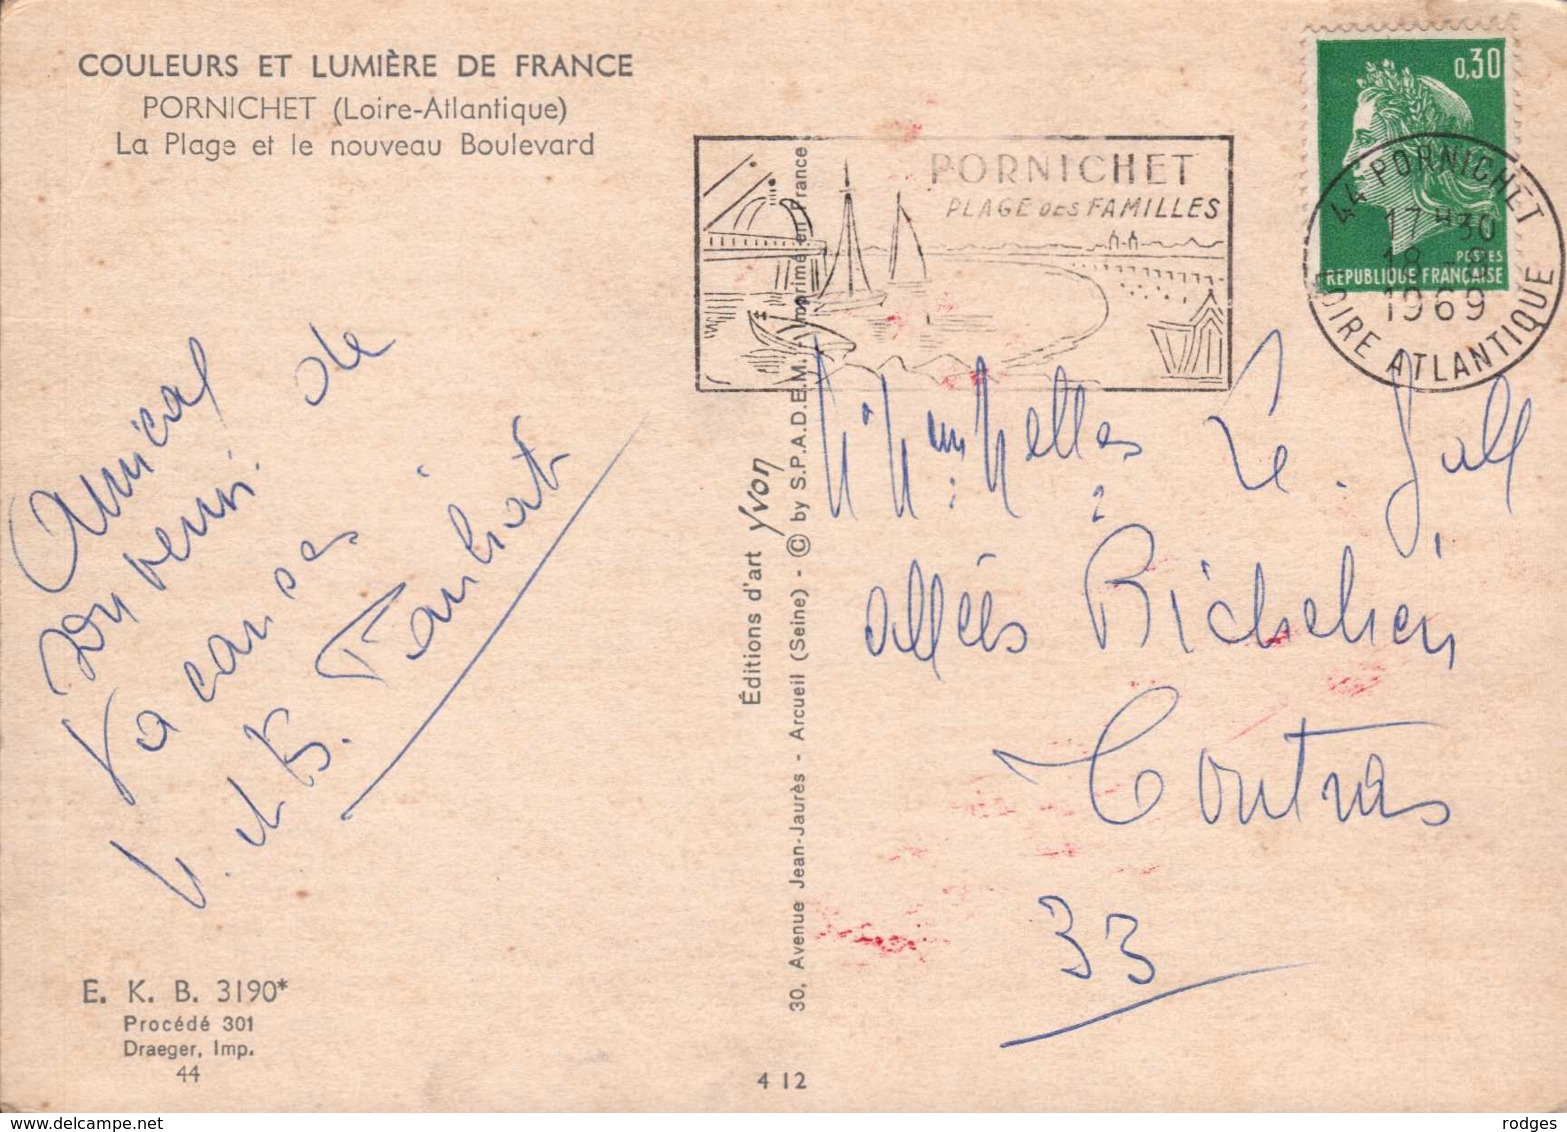 COULEURS ET LUMIÈRE DE FRANCE
PORNICHET (Loire-Atlantique)
La Plage et le nouveau Boulevard
Amical
souvenir de
vacances
E. K. B. 3190*
Procédé 301
Draeger, Imp.
44
4 12
Éditions d'art yvon
30, Avenue Jean-Jaurès - Arcueil (Seine) - © by S.P.A.D.E.M. - Imprimé en France
PORNICHET
PLAGE DES FAMILLES
0,30
POSTES
RÉPUBLIQUE FRANÇAISE
44 PORNICHET
17 H 30
18 -
1969
LOIRE ATLANTIQUE
Le Gall
allées Richelieu
Coutras
33
rodges
© www.delcampe.net